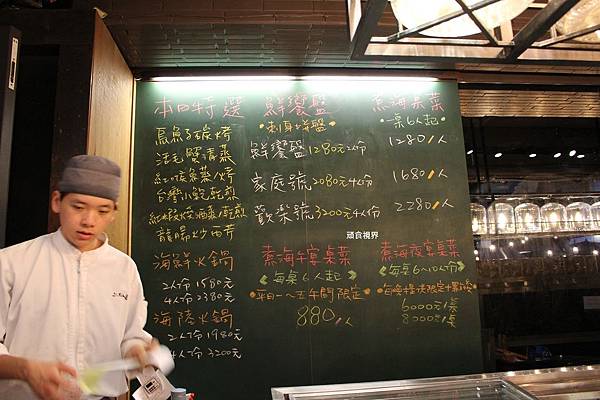 本日特選
烏魚子碳烤
活毛蟹清蒸
紅喉魚蒸/烤
台灣小鮑乾煎
龍腸炒西芹
海鮮火鍋
2人份 1580元
4人份 2380元
海陸火鍋
2人份 1980元
4人份 3200元
鮮饗盤
•刺身6海盤•
鮮饗盤 1280元2人份
家庭號 2080元4人份
歡樂號 3200元4人份
頑食視界
海桌菜
一桌6人起
1280/人
1680/人
2280/人
海午宴桌菜
《每桌6人起》
•平日一~五午間限定•
880/人
海夜宴桌菜
《每桌6~10人份》
6000元/桌
8000元/桌